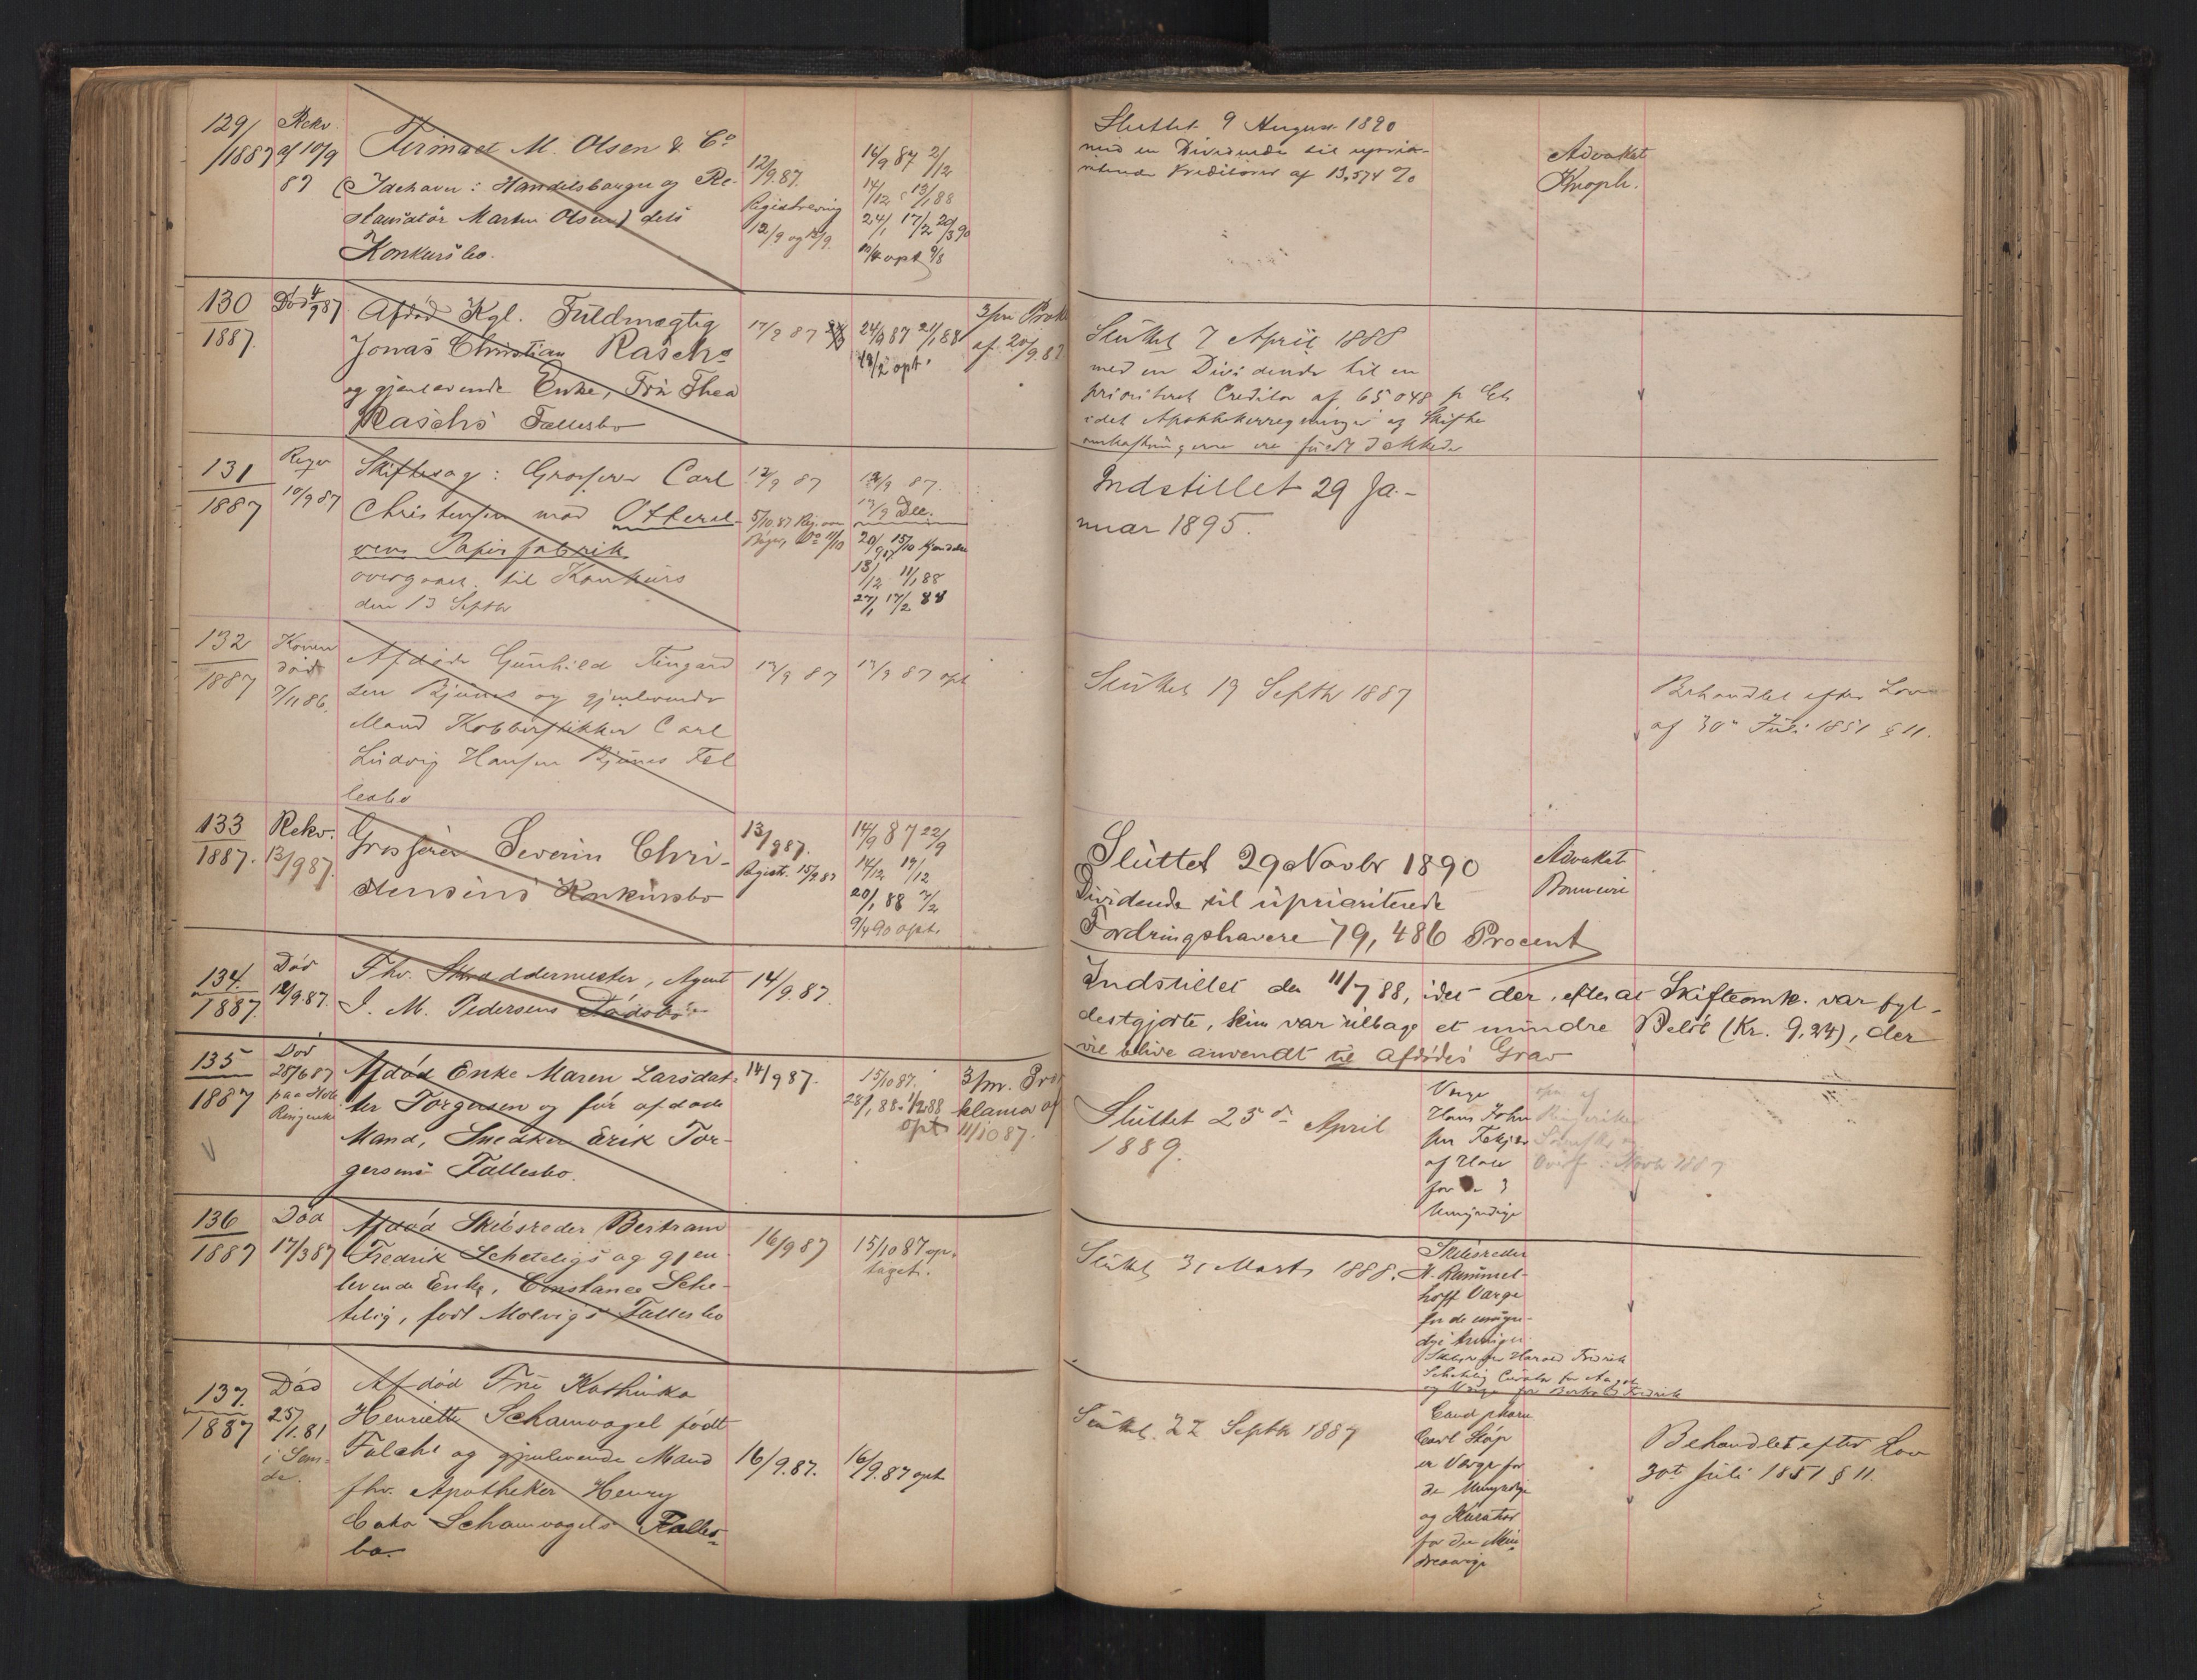 129/
/1887
Rekv.
af 10/9
87
Firmaet M. Olsen & Co
(Indehaver: Handelsborger og Re-
stauratør Martin Olsen) dets
Konkursbo.
12/9.87.
Registrering
12/9 og 13/9.
14/9 87 2/12
14/12 13/1 88
24/1 17/2 20/3 90
opt 9/8
Sluttet 9 August 1890
med en Dividende til uprio-
riterede Kreditorer af 13,574 %
Advokat
Knoph.
130
1887.
Død 4/9 87
Afdød Kgl. Fuldmægtig
Jonas Christian Raschs
og gjenlevende Enke, Fru Thea
Raschs Fællesbo
17/9 87
24/9 87 21/1 88
18/2 opt.
3/m Prok
af 20/9.87
Sluttet 7 April 1888
med en Dividende til en
prioriteret Creditor af 65,048 p Ct.
idet Apothekerregninger og Skifte
omkostningerne ere fuldt dækkede
131
1887
10/9 87
Skiftesag: Grosserer Carl
Christensen mod Otterel-
vens Papirfabrik
overgaaet til Konkurs
den 13 Septbr
12/9 87
5/10.87 Reg. om
12/9 87.
13/9 Dec.
20/9 87 15/10
13/12 11/1 88
27/1 17/2 88
Indstillet 29 Ja-
nuar 1895.
132
1887
Konen
død
7/11 86.
Afdøde Gunhild
og gjenlevende
Mand Kobberstikker Carl
Ludvig Hansen Fæl
lesbo
13/9 87
17/9 87 opt
Sluttet 19 Septbr 1887
Behandlet efter Lov
af 30te Juli 1851 § 11.
133
1887.
Rekv.
13/9 87.
Grosserer Severin Chri-
stensens Konkursbo
13/9 87.
Registr. 15/9 87
14/9 87 22/9
14/12 19/12
20/1 88 7/2
9/4 90 opt.
Sluttet 29 Novbr 1890
Dividende til upriariterede
Fordringshavere 79,486 Procent
Advokat
134.
1887.
Død
12/9.87.
Fhv. Skræddermester, Agent
J. M. Pedersens Dødsbo
14/9.87.
Indstillet den 11/7 88, idet der, efter at Skifteomk. var fyl-
destgjorte, kun var tilbage et mindre Beløb (Kr. 9,24), der
vil blive anvendt til afdødes Grav
135
1887
Død
28/6 87
paa Hole
Ringerike
Afdød Enke Maren Larsdat-
ter Torgersen og før afdøde
Mand, Snedker Erik Tor-
gersens Fællesbo.
14/9 87.
15/10 87.
28/1 88. 1/2 88
opt
3/m. Pro
klama af
11/10 87.
Sluttet 25de April
1889.
Værge
Hans John
sen
af Hole
for de 3
Umyndige
Ringerikes
Novbr 1887
136
1887
Død
17/3 87
Afdød Skibsreder Bertram
Fredrik Scheteligs og gjen
levende Enke, Constance Sche-
telig, født Molvigs Fællesbo
16/9 87
15/10 87 op-
taget.
Sluttet 31 Marts 1888.
Skibsreder
H. Rummel-
hoff Værge
for de umyn-
dige Arvinger
Harald Fredrik
Schetelig Curator for Aagot
og Værge for Fredrik
137.
1887
Død
25/1.81
i San-
de.
Afdød Fru Kathinka
Henriette Schamvogel født
Falch og gjenlevende Mand
fhv. Apotheker Henry
Cato Schamvogels Fælles-
bo.
16/9.87.
16/9.87 opt
Sluttet 22 Septbr 1887
Cand pharm
Carl
er Værge for
de Umyndige
og Kurator
for den Min
dreaarige
Behandlet efter Lov
30te Juli 1851 § 11.